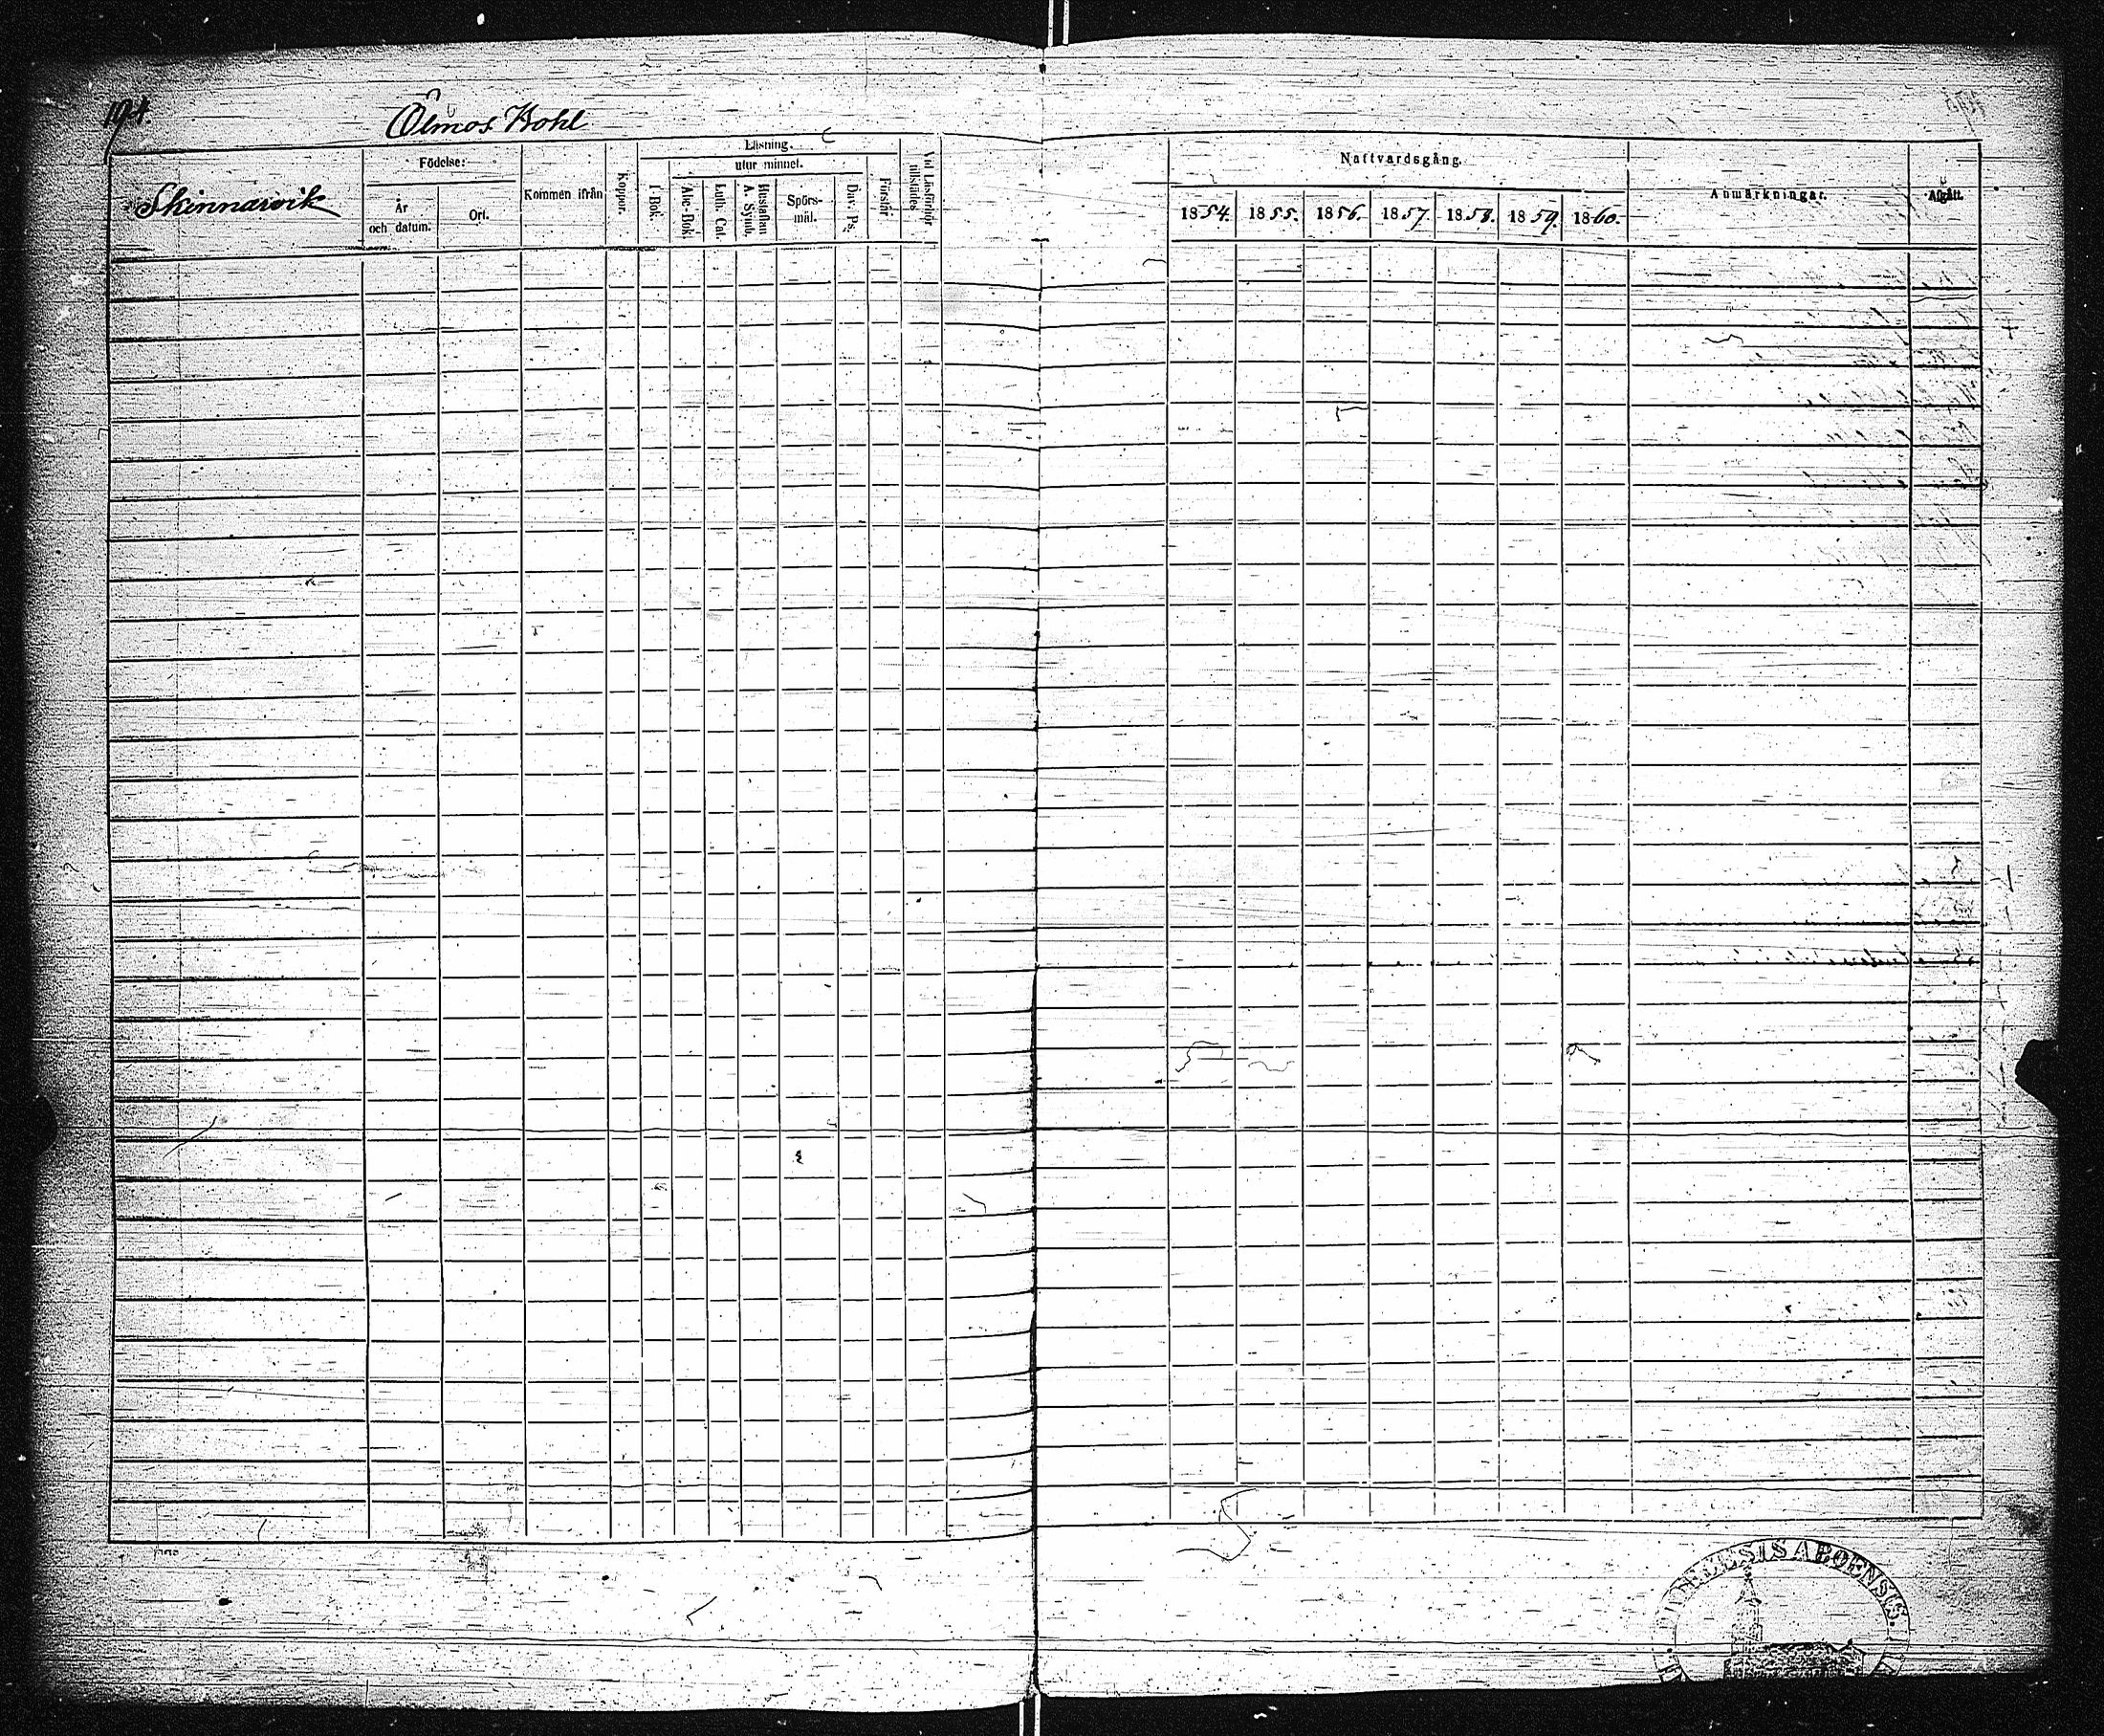 194.
Ölmos Bohl
Skinnarvik
Födelse:
År
och datum.
Ort.
Kommen ifrån
Koppor.
Läsning.
utur minnet.
I Bok.
Abc-Bok.
Luth. Cat.
Hustaflan
A. Symb.
Spörs-
mål.
Dav. Ps.
Förstår
Vid Läsförhör
tillstädes
Nattvardsgång.
1854. 1855. 1856. 1857. 1858. 1859. 1860.
Anmärkningar.
Afgått.
ABOENSIS.